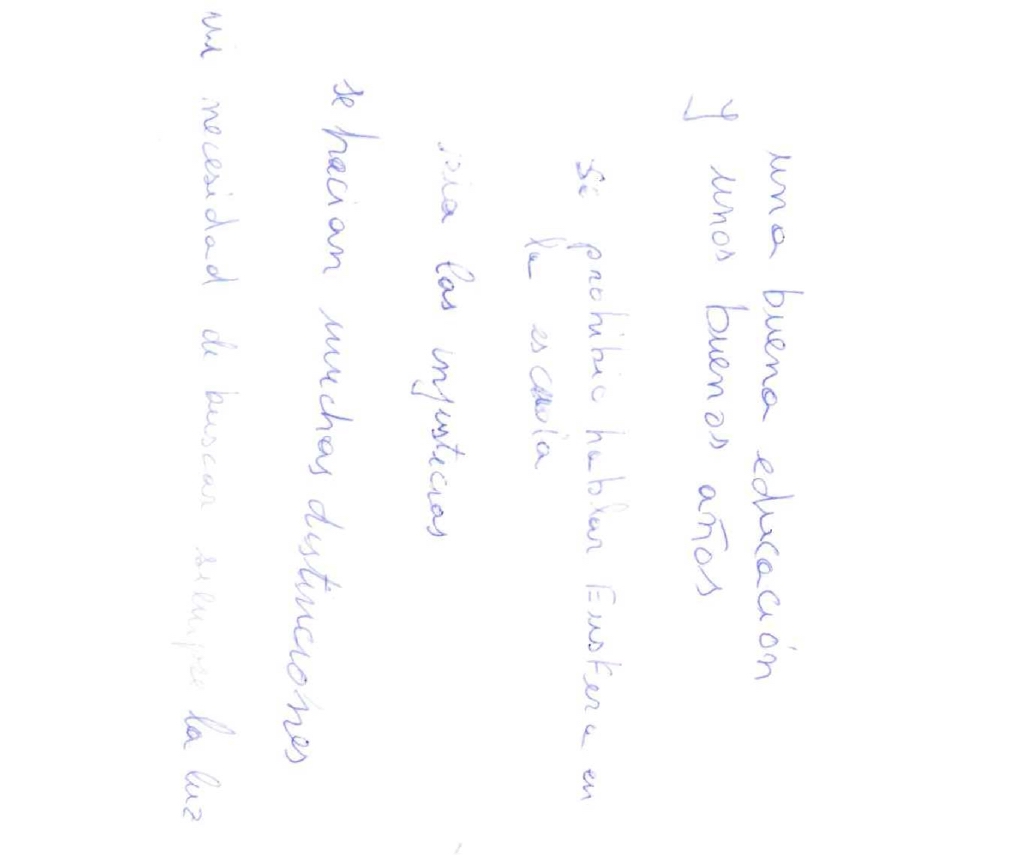 una buena educación
y unos buenos años
se prohibio hablar Euskera en
la escuela
las injusticias
se hacian muchas distinciones
mi necesidad de buscar siempre la luz